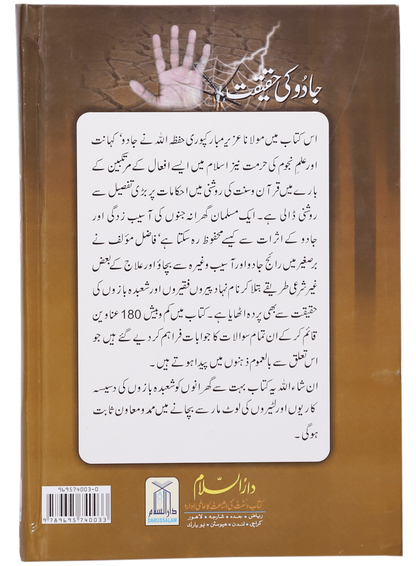 جادو کی حقیقت
اس کتاب میں مولانا عزیز مبارکپوری حفظہ اللہ نے جادو‘ کہانت
اور علم نجوم کی حرمت نیز اسلام میں ایسے افعال کے مرتکبین کے
بارے میں قرآن و سنت کی روشنی میں احکامات پر بڑی تفصیل سے
روشنی ڈالی ہے۔ ایک مسلمان گھرانہ جنوں کی آسیب زدگی اور
جادو کے اثرات سے کیسے محفوظ رہ سکتا ہے‘ فاضل مؤلف نے
برصغیر میں رائج جادو اور آسیب وغیرہ سے بچاؤ اور علاج کے بعض
غیر شرعی طریقے بتلا کر نام نہاد پیروں فقیروں اور شعبدہ بازوں کی
حقیقت سے بھی پردہ اٹھایا ہے۔ کتاب میں کم و بیش 180 عناوین
قائم کر کے ان تمام سوالات کا جوابات فراہم کر دیے گئے ہیں جو
اس تعلق سے بالعموم ذہنوں میں پیدا ہوتے ہیں۔
ان شاء اللہ یہ کتاب بہت سے گھرانوں کو شعبدہ بازوں کی دسیسہ
کاریوں اور لٹیروں کی لوٹ مار سے بچانے میں ممد و معاون ثابت
ہو گی۔
دارالسلام
کتاب و سنت کی اشاعت کا عالمی ادارہ
ریاض • جدہ • شارجہ • لاہور
کراچی • لندن • ہیوسٹن • نیو یارک
دارالسلام
DARUSSALAM
969574003-0
9789695740033